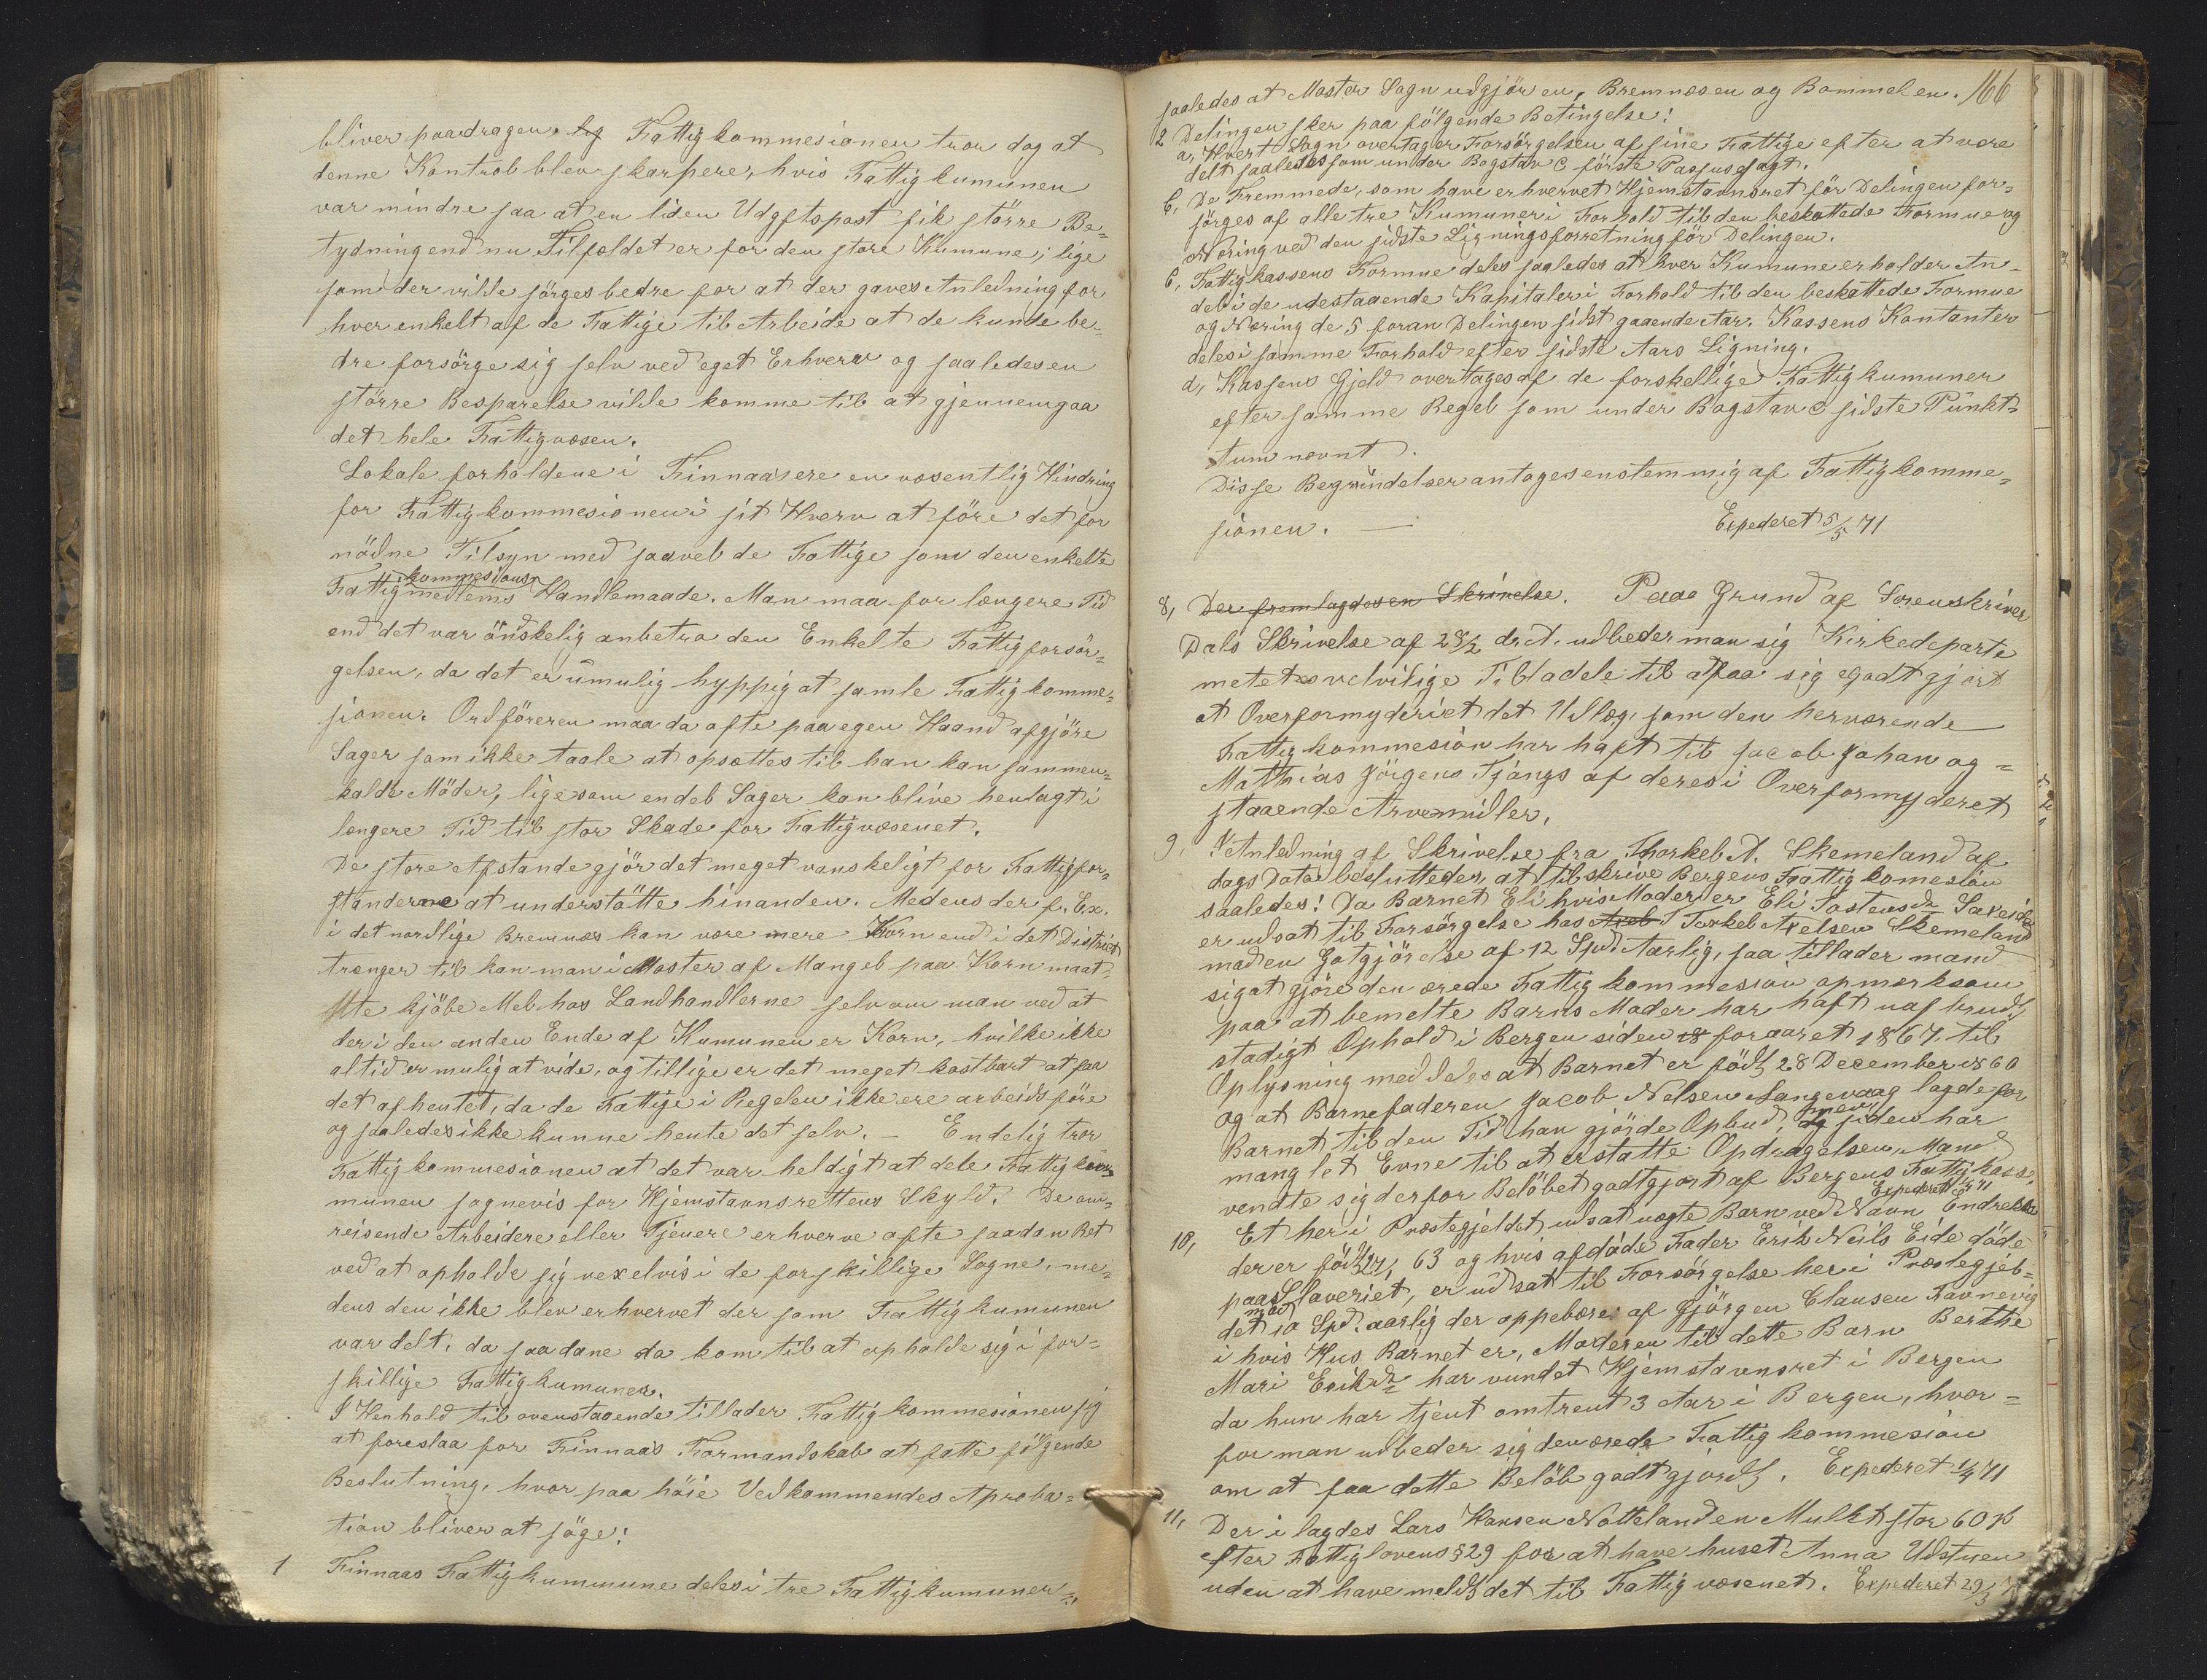 bliver paadragen. Fattigkommesionen tror dog at
denne Kontrol blev skarpere, hvis Fattigkumunen
var mindre saa at en liden Udgiftspost fik större Be-
tydning end nu Tilfældet er for den store Kumune; lige
som der vilde sörges bedre for at der gaves Anledning for
hver enkelt af de Fattige til Arbeide at de kunde be-
dre forsörge sig selv ved eget Erhverv og saaledes en
större Besparelse vilde komme til at gjennemgaa
det hele Fattigvæsen.
Lokale forholdene i Finnaas ere en væsentlig Hindring
for Fattigkommesionen i sit Hverv at före det for
nödne Tilsyn med saavel de Fattige som den enkelte
Fattigkommesions medlems Handlemaade. Man maa for længere Tid
end det var önskelig anbetro den Enkelte Fattigforsör-
gelsen, da det er umulig hyppig at samle Fattigkomme-
sionen. Ordföreren maa da ofte paa egen Haand afgjöre
Sager som ikke taale at opsættes til han kan sammen-
kalde Möder, ligesom endel Sager kan blive henlagt i
længere Tid til stor Skade for Fattigvæsenet.
De store Afstande gjör det meget vanskeligt for Fattigfor-
standerne at understötte hinanden. Medens der f. Ex.
i det nordlige Bremnæs kan være mere Korn end i det District
trænger til kan man i Moster af Mangel paa Korn maat-
te kjöbe Mel hos Landhandlerne selv om man ved at
der i den anden Ende af Kumunen er Korn, hvilke ikke
altid er mulig at vide, og tillige er det meget kostbart at faa
det afhentet, da de Fattige i Regelen ikke ere arbeidsföre
og saaledes ikke kunne hente det selv. – Endelig tror
Fattigkommesionen at det var heldigt at dele Fattigkom
munen sognevis for Hjemstavnsrettens Skyld. De om-
reisende Arbeidere eller Tjenere erhverve ofte saadan Ret
ved at opholde sig vexelvis i de forskillige Sogne, me-
dens den ikke blev erhvervet der som Fattigkumunen
var delt, da saadane da kom til at opholde sig i for-
skillige Fattigkumuner.
I Henhold til ovenstaaende tillader Fattigkommesionen sig
at foreslaa for Finnaas Formandskab at fatte fölgende
Beslutning, hvor paa höie Vedkommendes Aproba-
tion bliver at söge:
1 Finnaas Fattigkummune deles i tre Fattigkumuner
166
saaledes at Moster Sogn udgjör en, Bremnæs en og Bommel en.
2 Delingen sker paa fölgende Betingelse:
a, Hvert Sogn overtager Forsörgelsen af sine Fattige efter at være
delt saaledes som under Bogstav C förste Passus sagt.
b, De Fremmede, som have erhvervet Hjemstavnsret för Delingen for-
sörges af alle tre Kumuner i Forhold til den beskattede Formue og
Næring ved den sidste Ligningsforretning för Delingen.
C, Fattigkassens Formue deles saaledes at hver Kumune erholder An-
del i de udestaaende Kapitaler i Forhold til den beskattede Formue
og Næring de 5 foran Delingen sidst gaaende Aar. Kassens Kontanter
deles i samme Forhold efter sidste Aars Ligning.
d, Kassens Gjeld overtages af de forskellige Fattigkumuner
efter samme Regel som under Bogstav C sidste Punkt-
tum nævnt.
Disse Begrundelser antoges enstemmig af Fattigkomme-
sionen. —
Expederet 5/5 71
8, Der fremlagdes en Skrivelse. Paa Grund af Sorenskriver
Dals Skrivelse af 28/2 d. A. udbeder man sig Kirkedeparte
metets velvilige Tilladele til at faa sig godtgjort
at Overformyderiet det Udlæg, som den herværende
Fattigkommesion har haft til Jacob Johan og
Matthias Jörgens Tjangs af deres i Overformyderet
staaende Arvemidler.
9, I Anledning af Skrivelse fra Thorkel A. Skemeland af
dags Dato besluttedes, at tilskrive Bergens Fattigkomesion
saaledes: Da Barnet Eli hvis Moder er Eli Jostensdr Sakseide
er udsat til Forsörgelse hos Torkel Axelsen Skemeland
mad en Gotgjörelse af 12 Spd Aarlig, saa tillader mand
sig at gjöre den ærede Fattigkommesion opmærksom
paa at bemelte Barns Moder har haft uafbrudt
stadigt Ophold i Bergen siden foraaret 1867. til
Oplysning meddeles at Barnet er född 28 December 1860
og at Barnefaderen Jacob Nelsen Langevaag lagde for
Barnet til den Tid han gjörde Opbud, men siden har
manglet Evne til at erstatte Opdragelsen. Mand
vendte sig derfor Belöbet godtgjort af Bergens Fattigkasse.
Expederet
10, Et her i Præstegjeldet udsat uægte Barn ved Navn Endrekka
der er född 63 og hvis afdöde Fader Erik Neils Eide döde
paa Slaveriet, er udsat til Forsörgelse her i Præstegjel-
det mod 10 Spd. aarlig der oppebæres af Gjörgen Clausen Favnevig
i hvis Hus Barnet er, Moderen til dette Barn Berthe
Mari Eriksdr har vundet Hjemstavnsret i Bergen
da hun har tjent omtrent 3 Aar i Bergen, hvor-
for man udbeder sig den ærede Fattigkommesion
om at faa dette Belöb godtgjordt. Expederet 1/4 71
11, Der i lagdes Lars Hansen Notteland en Mulkt stor 60 ß
efter Fattiglovens § 29 for at have huset Anna Udstuen
uden at have meldt det til Fattigvæsenet. Expederet 29/3